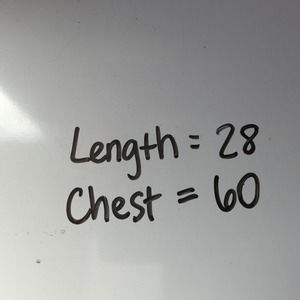 Length = 28
Chest = 60